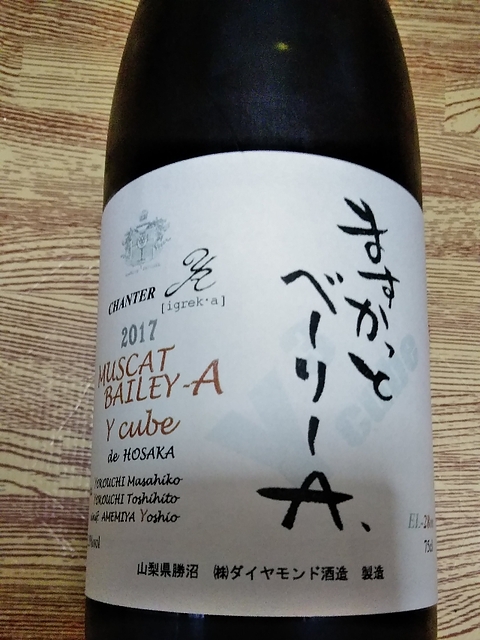 CHANTER YA
[igrek·a]
2017
MUSCAT
BAILEY-A
Y cube
de HOSAKA
YOKOUCHI Masahiko
YOKOUCHI Toshihito
AMEMIYA Yoshio
ますかっと
ベーリーA、
75cl
山梨県勝沼 ㈱ダイヤモンド酒造 製造